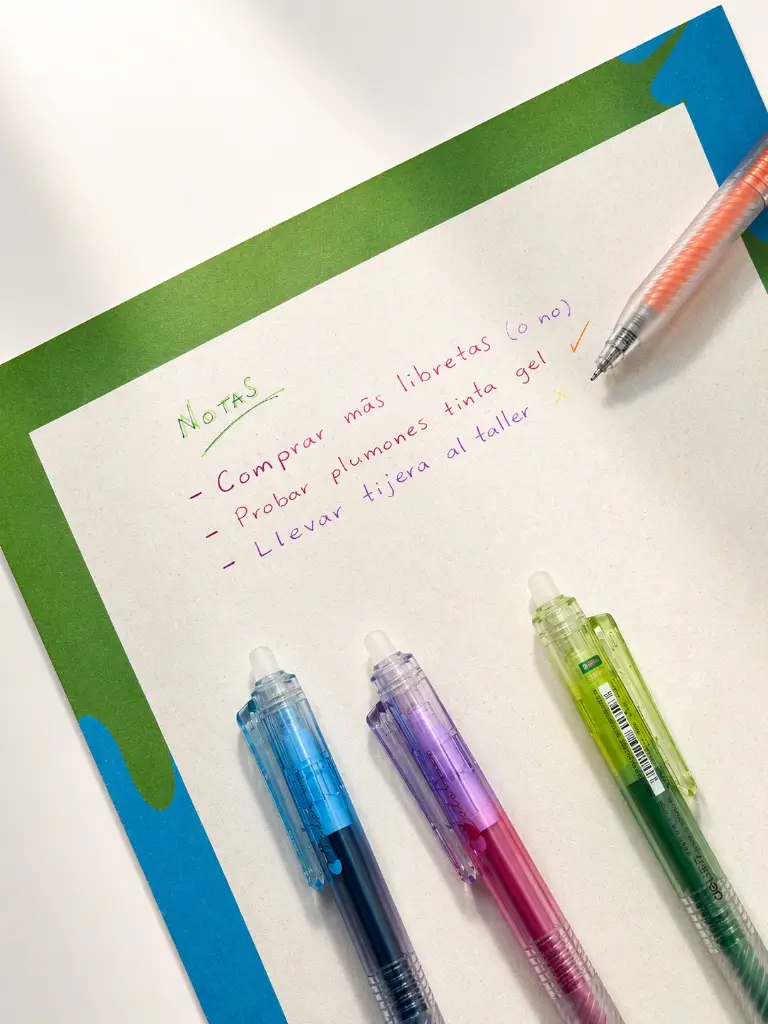 NOTAS
- Comprar más libretas (o no)
- Probar plumones tinta gel ✓
- Llevar tijera al taller x